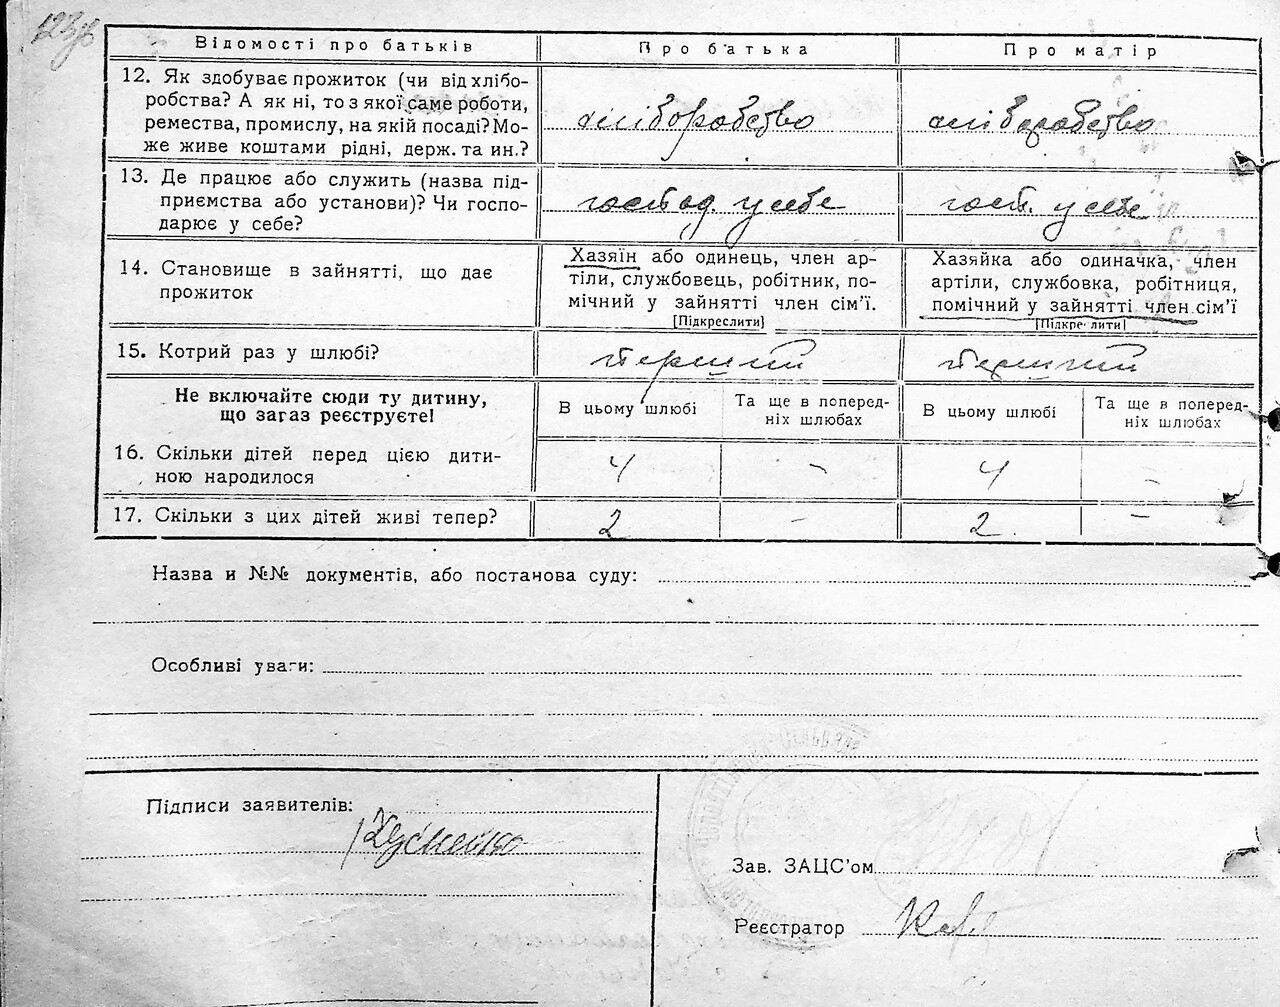 123зв
Відомості про батьків Про батька Про матір
12. Як здобуває прожиток (чи від хлібо-
робства? А як ні, то з якої саме роботи,
ремества, промислу, на якій посаді? Мо-
же живе коштами рідні, держ. та ин.?
хліборобство хліборобство
13. Де працює або служить (назва під-
приємства або установи)? Чи госпо-
дарює у себе?
господ. у себе госп. у себе
14. Становище в зайнятті, що дає
прожиток
Хазяїн або одинець, член ар-
тіли, службовець, робітник, по-
мічний у зайнятті член сім’ї.
[Підкреслити]
Хазяйка або одиначка, член
артіли, службовка, робітниця,
помічний у зайнятті член сім’ї
[Підкреслити]
15. Котрий раз у шлюбі? перший перший
Не включайте сюди ту дитину,
що загаз реєструєте!
В цьому шлюбі Та ще в поперед-
ніх шлюбах
В цьому шлюбі Та ще в поперед-
ніх шлюбах
16. Скільки дітей перед цією дити-
ною народилося
4 - 4 -
17. Скільки з цих дітей живі тепер? 2 - 2 -
Назва и №№ документів, або постанова суду:
Особливі уваги:
Підписи заявителів:
Зав. ЗАЦС’ом
Реєстратор